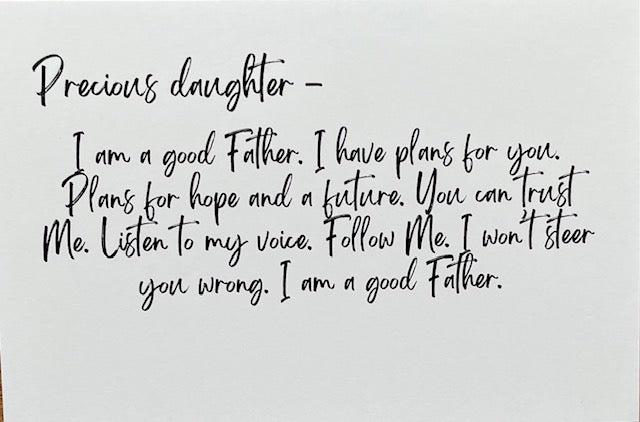 Precious daughter –
I am a good Father. I have plans for you.
Plans for hope and a future. You can trust
Me. Listen to my voice. Follow Me. I won't steer
you wrong. I am a good Father.